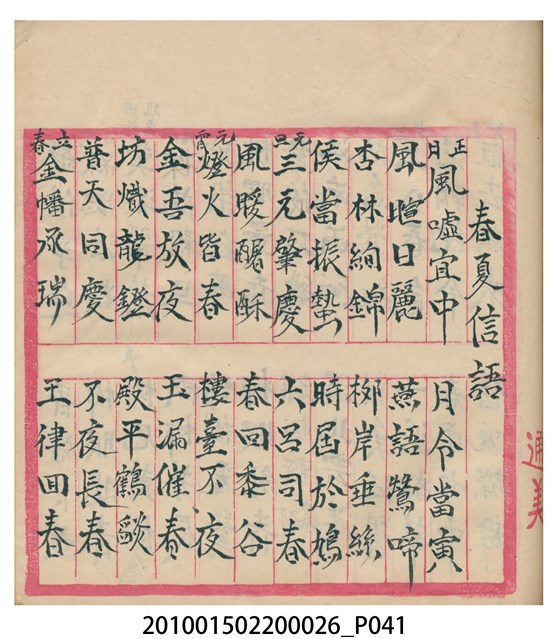 春夏信語
正月 風噓宜中 月令當寅
風暄日麗 燕語鶯啼
杏林絢錦 柳岸垂絲
侯當振蟄 時屆於鳩
元旦 三元肇慶 六呂司春
風暖醑酥 春回黍谷
元宵 燈火皆春 樓臺不夜
金吾放夜 玉漏催春
坊熾龍鐙 殿平鶴燄
普天同慶 不夜長春
立春 金幡承瑞 玉律回春
通美
201001502200026_P041